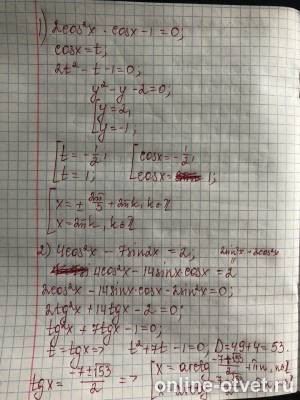 1) 2cos²x - cosx - 1 = 0;
cosx = t,
2t² - t - 1 = 0;
y² - y - 2 = 0;
[ y = 2,
y = -1;
[ t = -1/2; [ cosx = -1/2;
t = 1; cosx = 1;
[ x = ± 2π/3 + 2πk, k∈Z
x = 2πk, k∈Z
2) 4cos²x - 7sin2x = 2, 2sin²x + 2cos²x
4cos²x - 14sinxcosx = 2
2cos²x - 14sinx·cosx - 2sin²x = 0;
2tg²x + 14tgx - 2 = 0;
tg²x + 7tgx - 1 = 0;
t = tgx => t² + 7t - 1 = 0, D = 49 + 4 = 53
tgx = (-7±√53)/2 => [ x = arctg (-7+√53)/2 + πn, n∈Z
online-otvet.ru